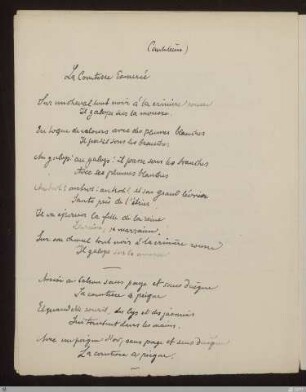 La Comtesse Esmerée
Sur un cheval tout noir à la crinière rousse
Il galope sur la mousse.
En toque de velours avec des plumes blanches
Il passe sous les branches
Au galop! au galop! il passe sous les branches
Avec ses plumes blanches
son grand lévrier
Saute près de l'étrier
Il va épouser la fille de la reine
Sur son cheval tout noir à la crinière rousse
Il galope sur la mousse
Assise au balcon sans page et sans duègne
La comtesse se peigne
Et quand elle sourit, des lys et des jasmins
Lui tombent dans les mains.
Avec un peigne d'or, sans page et sans duègne
La comtesse se peigne.